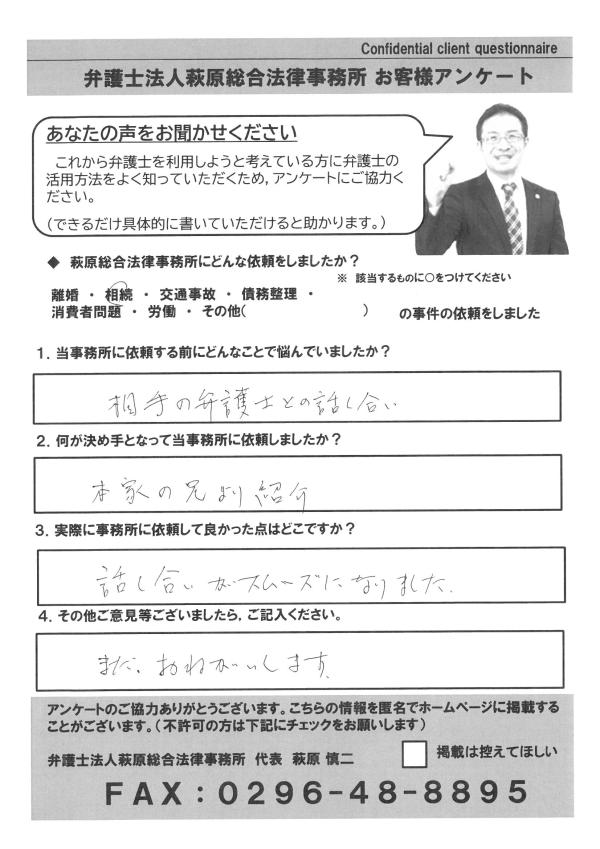 Confidential client questionnaire
弁護士法人萩原総合法律事務所 お客様アンケート
あなたの声をお聞かせください
これから弁護士を利用しようと考えている方に弁護士の
活用方法をよく知っていただくため,アンケートにご協力く
ださい。
(できるだけ具体的に書いていただけると助かります。)
◆ 萩原総合法律事務所にどんな依頼をしましたか?
※ 該当するものに○をつけてください
離婚 ・ 相続 ・ 交通事故 ・ 債務整理 ・
消費者問題 ・ 労働 ・ その他( ) の事件の依頼をしました
1.当事務所に依頼する前にどんなことで悩んでいましたか?
相手の弁護士との話し合い
2.何が決め手となって当事務所に依頼しましたか?
本家の兄より紹介
3.実際に事務所に依頼して良かった点はどこですか?
話し合いがスムーズになりました.
4.その他ご意見等ございましたら,ご記入ください。
また、おねがいします.
アンケートのご協力ありがとうございます。こちらの情報を匿名でホームページに掲載する
ことがございます。(不許可の方は下記にチェックをお願いします)
弁護士法人萩原総合法律事務所 代表 萩原 慎二
掲載は控えてほしい
FAX:0296-48-8895